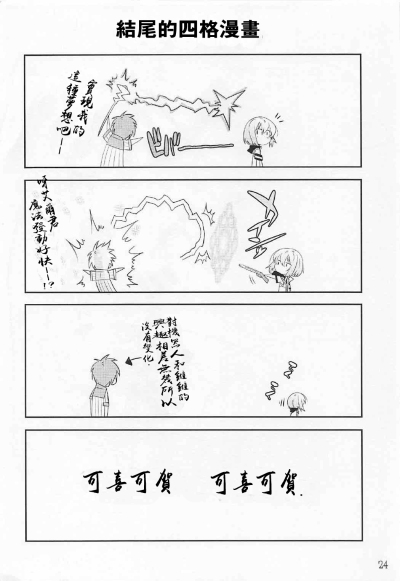 結尾的四格漫畫
實現我的
這種夢想吧——
ビビー
呀艾爾君
魔法發動好快——!?
對機器人和雞雞的
興趣相差無幾所以
沒有變化.
可喜可賀 可喜可賀.
24